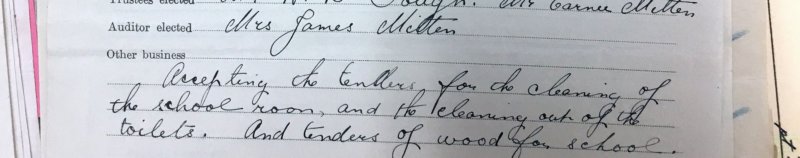 Trustees elected Gough. Mr Garner Mitten
Auditor elected Mrs James Mitten
Other business
Accepting the tenders for the cleaning of
the school room, and the cleaning out of the
toilets. And tenders of wood for school.